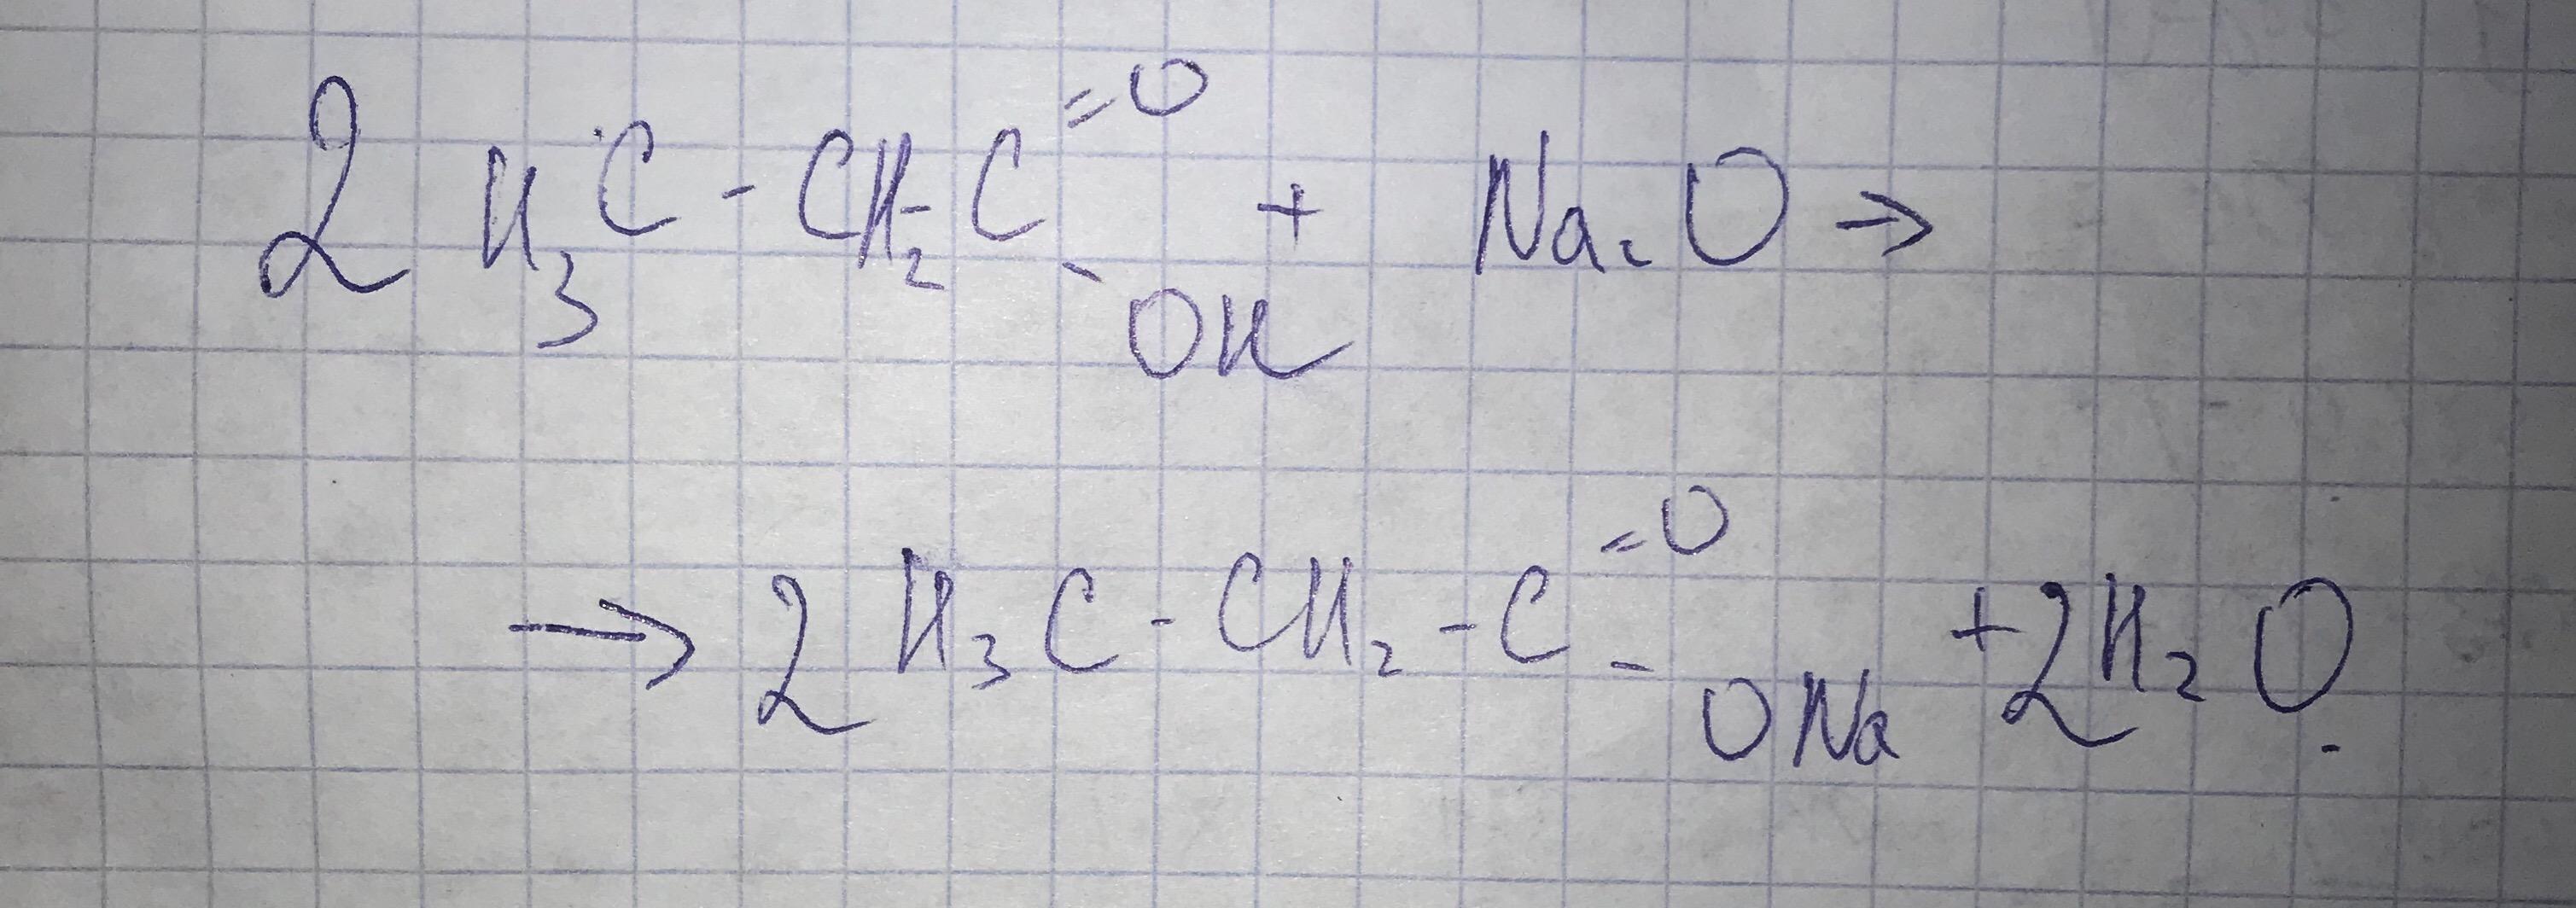 2 H₃C - CH₂- C =O - OH + Na₂O →
→ 2 H₃C - CH₂ - C =O - ONa + 2H₂O.